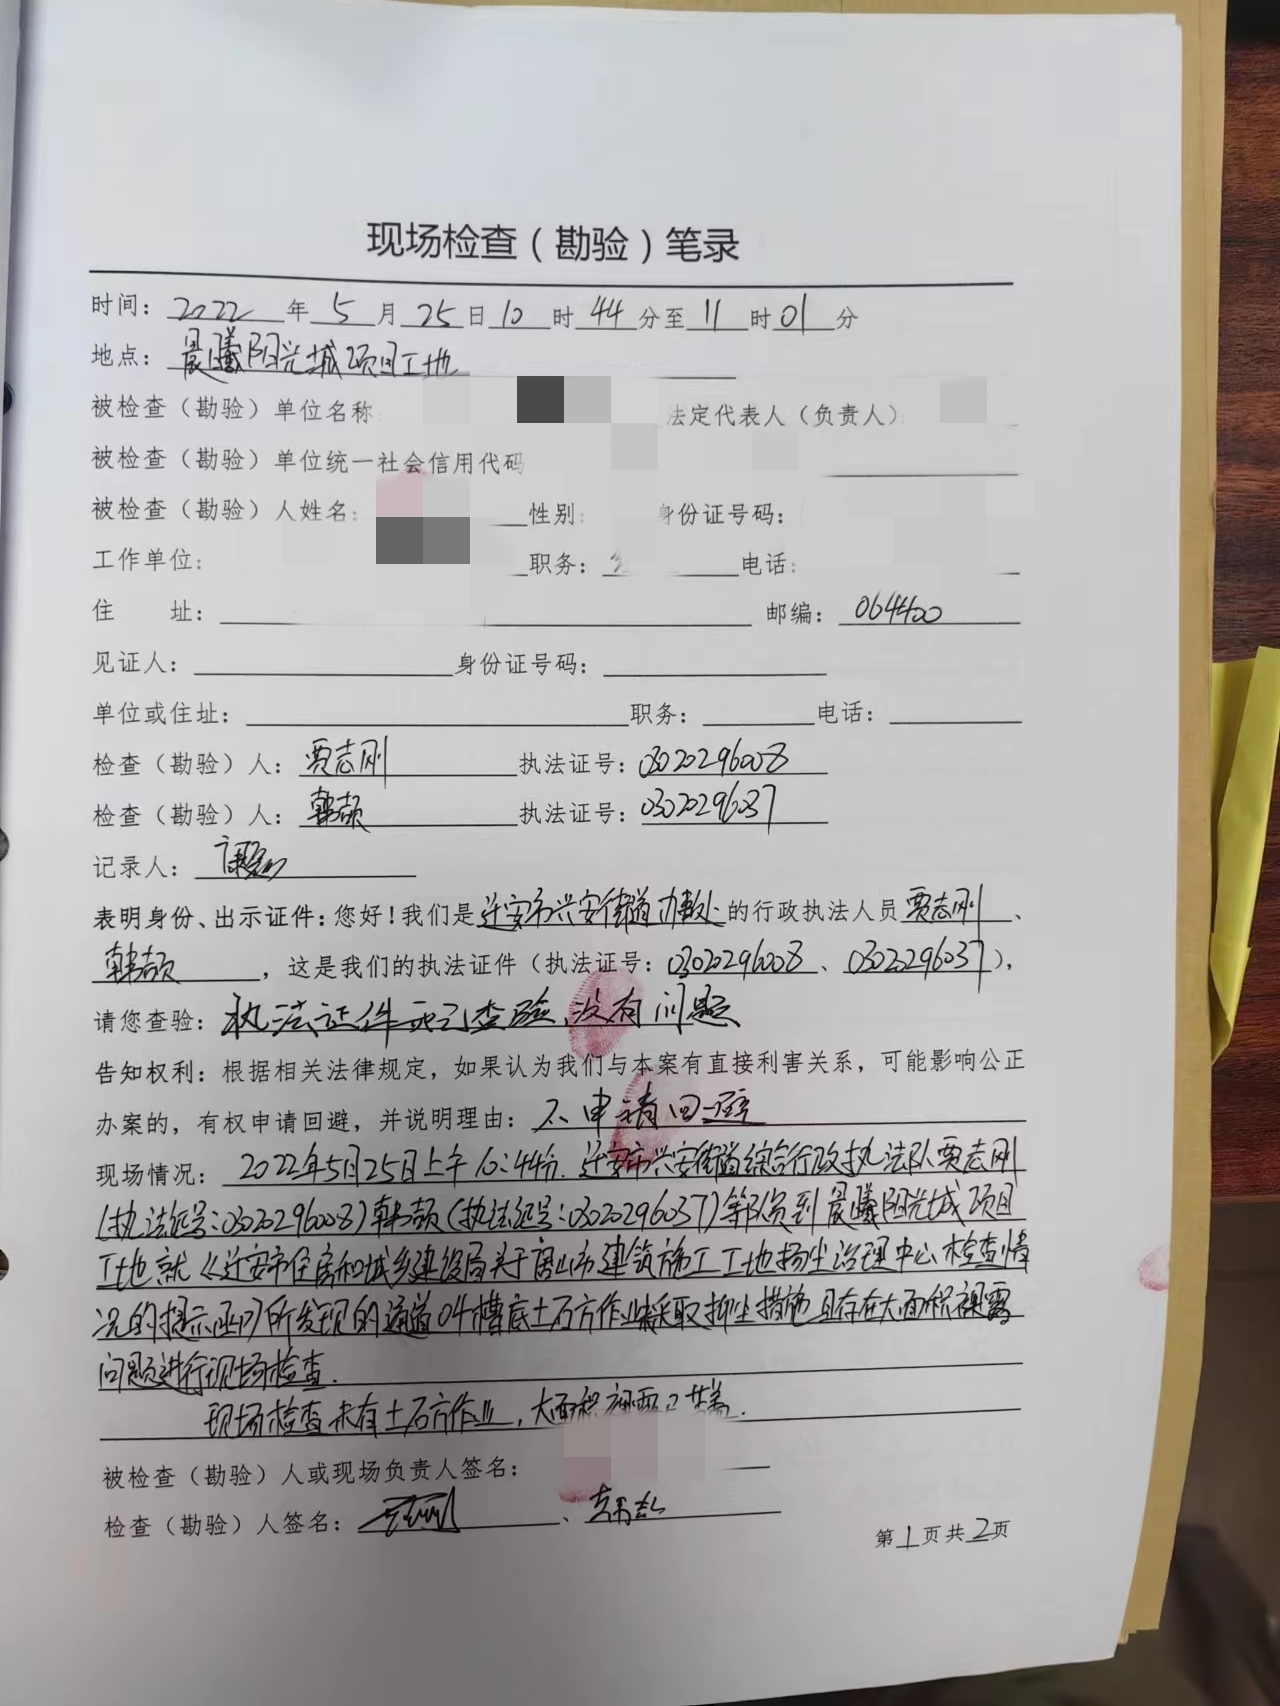 现场检查（勘验）笔录
时间：2022年5月25日10时44分至11时01分
地点：晨曦阳光城项目工地
被检查（勘验）单位名称 法定代表人（负责人）：
被检查（勘验）单位统一社会信用代码
被检查（勘验）人姓名： 性别： 身份证号码：
工作单位： 职务： 电话：
住 址： 邮编：064400
见证人： 身份证号码：
单位或住址： 职务： 电话：
检查（勘验）人：贾志刚 执法证号：03020296008
检查（勘验）人：韩颉 执法证号：0302296037
记录人：
表明身份、出示证件：您好！我们是迁安市兴安街道办事处的行政执法人员贾志刚、
韩颉，这是我们的执法证件（执法证号：03020296008、0302296037），
请您查验：执法证件我已查验，没有问题
告知权利：根据相关法律规定，如果认为我们与本案有直接利害关系，可能影响公正
办案的，有权申请回避，并说明理由：不申请回避
现场情况：2022年5月25日上午10:44分．迁安市兴安街道综合行政执法队贾志刚
（执法证号：03020296008）韩颉（执法证号：0302296037）等队员到晨曦阳光城项目
工地就《迁安市住房和城乡建设局关于唐山市建筑施工工地扬尘治理中心检查情
况的提示函》所发现的通道04槽底土石方作业未采取抑尘措施且存在大面积裸露
问题进行现场检查．
现场检查未有土石方作业，大面积裸露已苫盖．
被检查（勘验）人或现场负责人签名：
检查（勘验）人签名： 、
第1页共2页